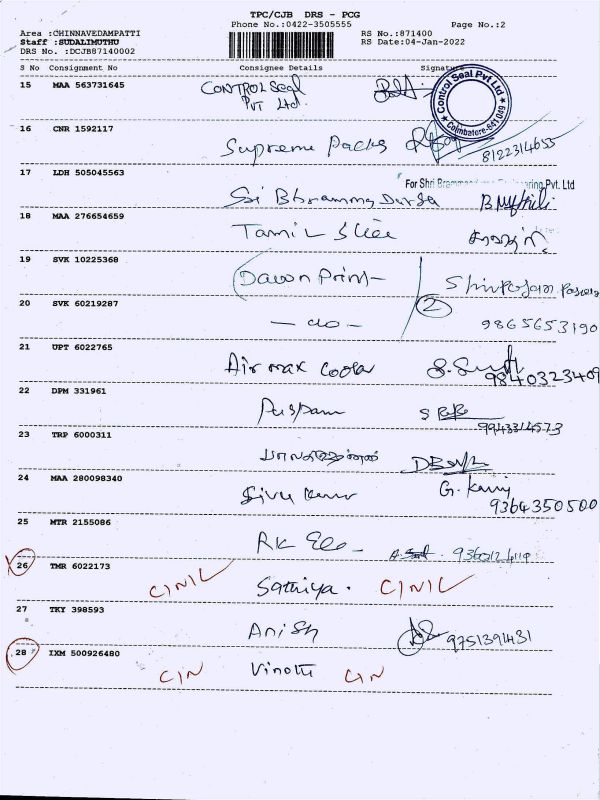 TPC/CJB DRS - PCG
Phone No.:0422-3505555 Page No.:2
Area :CHINNAVEDAMPATTI RS No.:871400
Staff :SUDALIMUTHU RS Date:04-Jan-2022
DRS No. :DCJB87140002
S No Consignment No Consignee Details Signature
15 MAA 563731645 CONTROL Seal
Pvt Ltd.
Control Seal Pvt Ltd
Coimbatore-641 049
16 CNR 1592117 Supreme Packs 8122314653
17 LDH 505045563 For Shri Pvt. Ltd
Sri Bhramma Durga
18 MAA 276654659 Tamil
19 SVK 10225368 Dawn Print
20 SVK 60219287 - do - 2 9865653190
21 UPT 6022765 Air max cooler 9840323409
22 DPM 331961 Puspam
9943314573
23 TRP 6000311
24 MAA 280098340 Siva Kumar G.
9364350500
25 MTR 2155086 RK
26 TMR 6022173 CINIL Sathiya. CINIL
27 TKY 398593 Anish 9751391431
28 IXM 500926480 CIN Vinoth CIN